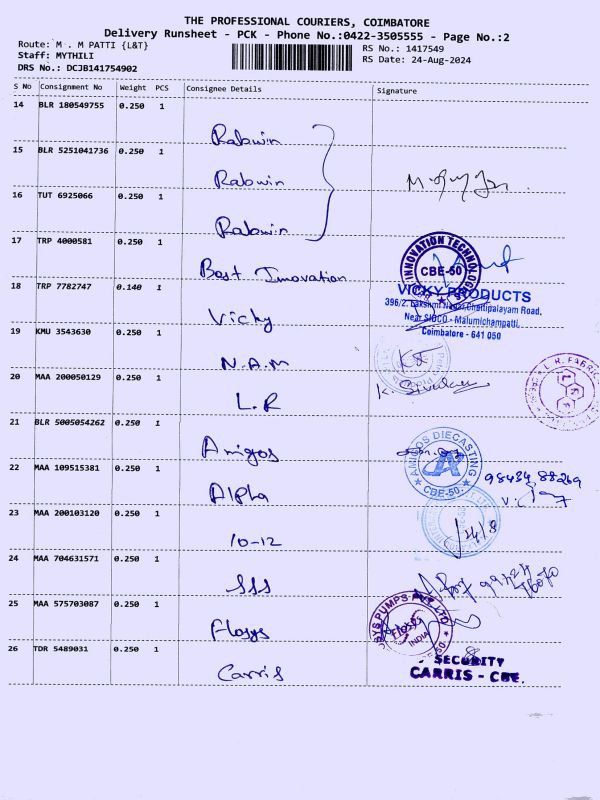 THE PROFESSIONAL COURIERS, COIMBATORE
Delivery Runsheet - PCK - Phone No.:0422-3505555 - Page No.:2
Route: M . M PATTI {L&T} RS No.: 1417549
Staff: MYTHILI RS Date: 24-Aug-2024
DRS No.: DCJB141754902
S No Consignment No Weight PCS Consignee Details Signature
14 BLR 180549755 0.250 1
Rabwin
15 BLR 5251041736 0.250 1
Rabwin
16 TUT 6925066 0.250 1
Rabwin
17 TRP 4000581 0.250 1
Best Innovation
INNOVATION TECHNOLOGY
CBE-50
18 TRP 7782747 0.140 1
Vicky
VICKY PRODUCTS
396/2, Lakshmi Nagar, Chettipalayam Road,
Near SIDCO - Malumichampatti,
Coimbatore - 641 050
19 KMU 3543630 0.250 1
N.A.M
20 MAA 200050129 0.250 1
L.R
K. Sivakumar
L. R. FABRIC
21 BLR 5005054262 0.250 1
Amigos
AMIGOS DIECASTING
CBE-50.
22 MAA 109515381 0.250 1
Alpha
98434 88269
23 MAA 200103120 0.250 1
10-12
24 MAA 704631571 0.250 1
SSS
25 MAA 575703087 0.250 1
Flosys
SYS PUMPS PVT LTD
Flosys
INDIA
26 TDR 5489031 0.250 1
Carris
SECURITY
CARRIS - CBE.